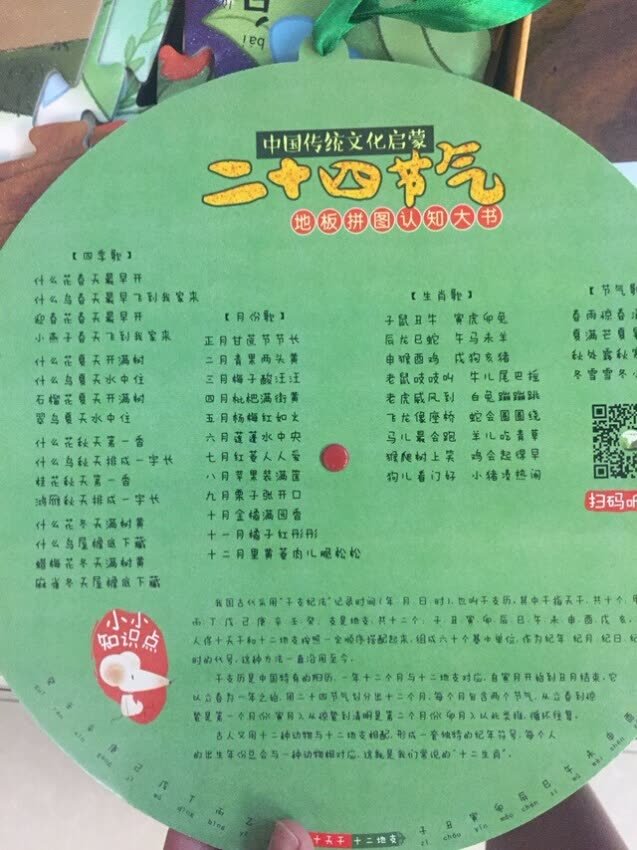 中国传统文化启蒙
二十四节气
地板拼图认知大书
【四季歌】
什么花春天最早开
什么鸟春天最早飞到我家来
迎春花春天最早开
小燕子春天飞到我家来
什么花夏天开满树
什么鸟夏天水中住
石榴花夏天开满树
翠鸟夏天水中住
什么花秋天第一香
什么鸟秋天排成一字长
桂花秋天第一香
鸿雁秋天排成一字长
什么花冬天满树黄
什么鸟屋檐底下藏
蜡梅花冬天满树黄
麻雀冬天屋檐底下藏
【月份歌】
正月甘蔗节节长
二月青果两头黄
三月梅子酸汪汪
四月枇杷满街黄
五月杨梅红如火
六月莲蓬水中央
七月红枣人人爱
八月苹果装满筐
九月栗子张开口
十月金橘满园香
十一月橘子红彤彤
十二月里黄荸肉儿脆松松
【生肖歌】
子鼠丑牛 寅虎卯兔
辰龙巳蛇 午马未羊
申猴酉鸡 戌狗亥猪
老鼠吱吱叫 牛儿尾巴摇
老虎威风到 白兔蹦蹦跳
飞龙像座桥 蛇会圈圈绕
马儿最会跑 羊儿吃青草
猴爬树上笑 鸡会起得早
狗儿看门好 小猪凑热闹
【节气歌
春雨惊春
夏满芒夏
秋处露秋
冬雪雪冬
扫码听
小小
知识点
我国古代采用“干支纪法”记录时间(年、月、日、时),也叫干支历。其中干指天干,共十个,
丙丁戊己庚辛壬癸。支是地支,共十二个:子丑寅卯辰巳午未申酉戌亥。
人你十天干和十二地支按照一定顺序搭配起来,组成六十个基本单位,作为纪年、纪月、纪日、纪
时的代号,这种方法一直沿用至今。
干支历是中国特有的阳历,一年十二个月与十二地支对应,自寅月开始到丑月结束。它
以立春为一年之始,用二十四节气划分出十二个月,每个月包含两个节气,从立春到惊
蛰是第一个月份(寅月),从惊蛰到清明是第二个月份(卯月),以此类推,循环往复。
古人又用十二种动物与十二地支相配,形成一套独特的纪年符号,每个人
的出生年份总会与一种动物相对应,这就是我们常说的“十二生肖”。
癸 壬 辛 庚 己 戊 丁 丙 乙
十天干 十二地支
子 丑 寅 卯 辰 巳 午 未 申 酉
zǐ chǒu yín mǎo chén sì wǔ wèi
bái